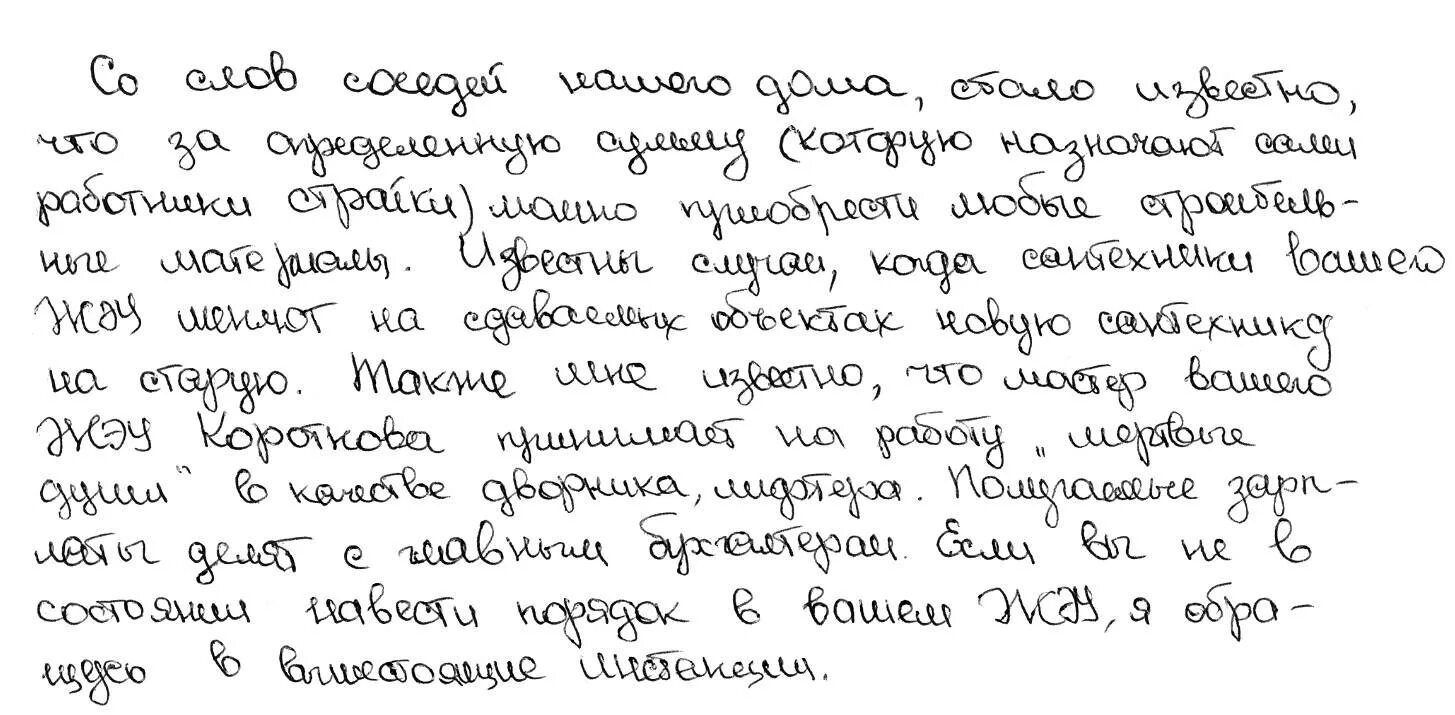 Со слов соседей нашего дома, стало известно,
что за определенную сумму (которую назначают сами
работники стройки) можно приобрести любые строитель-
ные материалы. Известны случаи, когда сантехники вашего
ЖЭУ меняют на сдаваемых объектах новую сантехнику
на старую. Также мне известно, что мастер вашего
ЖЭУ Короткова принимает на работу „мертвые
души" в качестве дворника, лифтера. Получаемые зарп-
латы делят с главным бухгалтером. Если вы не в
состоянии навести порядок в вашем ЖЭУ, я обра-
щусь в вышестоящие инстанции.